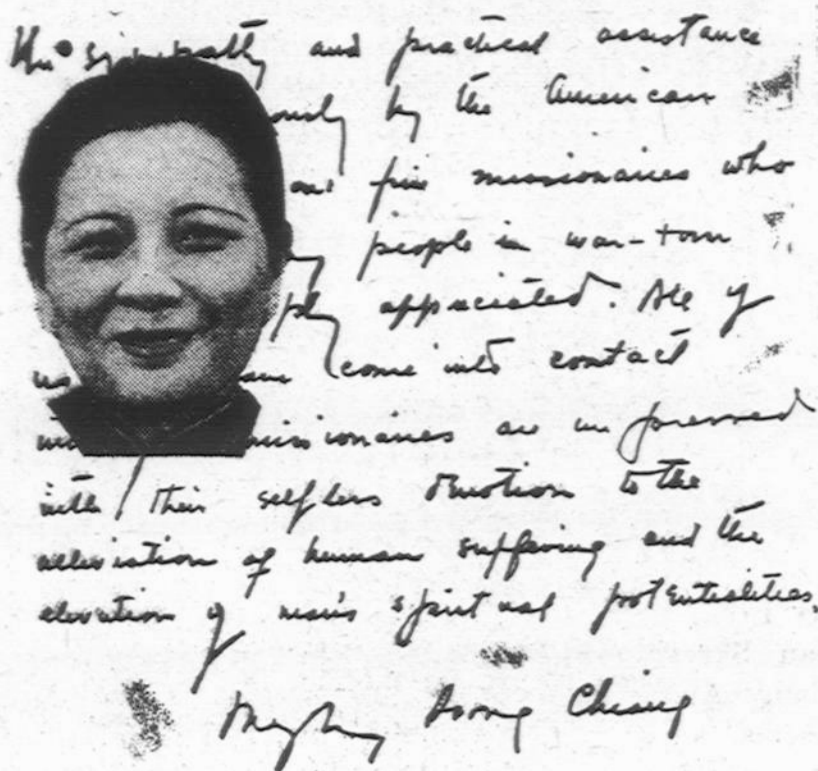 The sympathy and practical assistance
ously by the American
fine missionaries who
people in war-torn
ply appreciated. All of
us come into contact
missionaries are impressed
with their selfless devotion to the
alleviation of human suffering and the
elevation of man's spiritual potentialities.
Mayling Soong Chiang